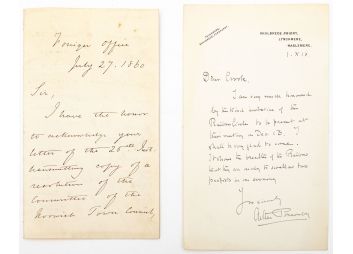 Foreign Office
July 27. 1860
Sir,
I have the honor
to acknowledge your
letter of the 25th Inst.
transmitting copy of a
resolution of the
Committee of the
Norwich Town Council,
SHULBREDE PRIORY,
LYNCHMERE,
HASLEMERE.
Dear
I am very much honoured
by the kind invitation of the
to be present at
their meeting on Dec 13. I
shall be very glad to come. I
the breadth of the
that they are ready to swallow two
in an evening
Yours sincerely
Arthur Ponsonby